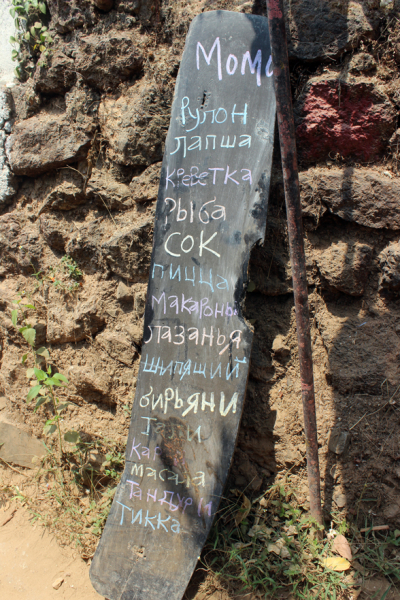 Момо
рулон
лапша
креветка
рыба
сок
пицца
макароны
лазанья
шипящий
бирьяни
тали
масала
тандури
тикка